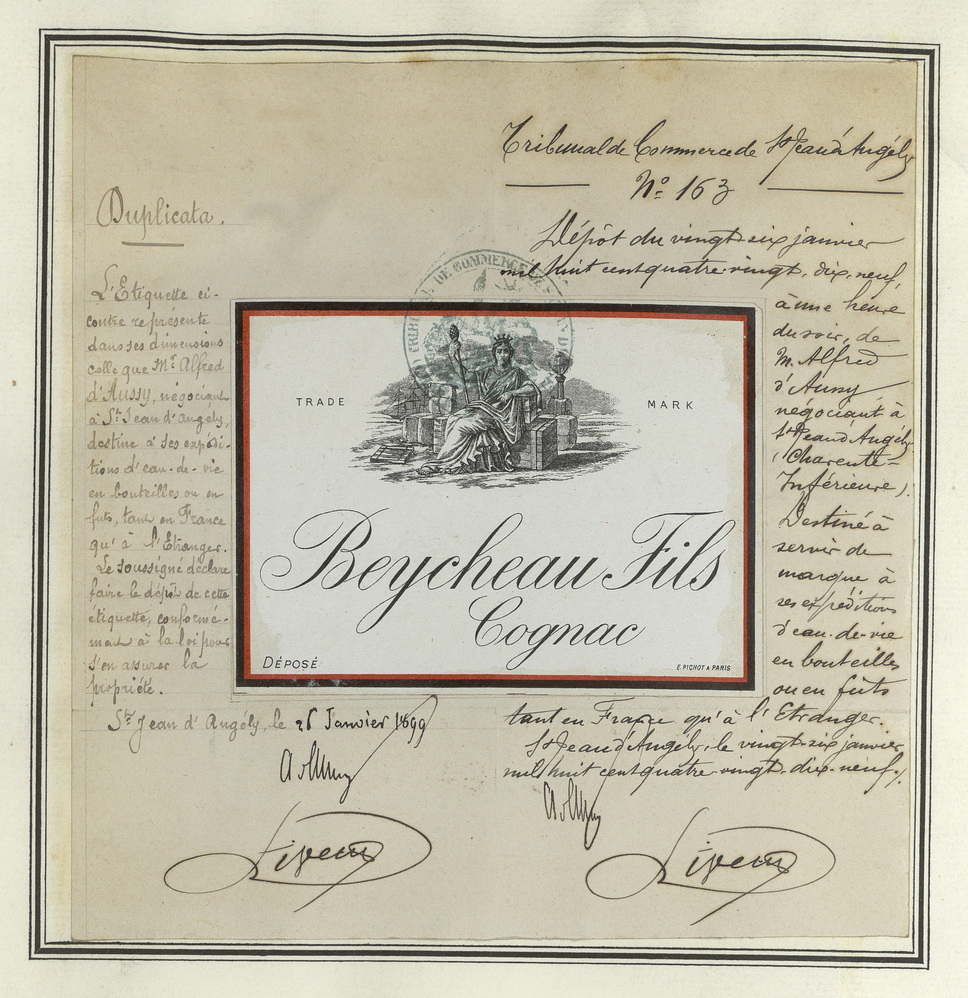 Tribunal de Commerce de St Jean d'Angély
N° 163
Duplicata.
Dépôt du vingt-six janvier
mil huit cent quatre-vingt-dix-neuf,
à une heure
du soir, de
M. Alfred
d'Aussy
négociant à
St Jean d'Angély
(Charente-
Inférieure).
Destiné à
servir de
marque à
ses expéditions
d'eau-de-vie
en bouteilles
ou en fûts
tant en France qu'à l'Etranger.
St Jean d'Angély, le vingt-six janvier
mil huit cent quatre-vingt-dix-neuf.
L'Etiquette ci-
contre représente
dans ses dimensions
celle que Mr Alfred
d'Aussy, négociant
à St Jean d'Angely,
destine à ses expédi-
tions d'eau-de-vie
en bouteilles ou en
futs, tant en France
qu'à l'Etranger.
Le soussigné déclare
faire le dépôt de cette
étiquette, conformé-
ment à la loi pour
s'en assurer la
propriété.
St Jean d'Angély, le 26 Janvier 1899
TRADE MARK
Beycheau Fils
Cognac
DÉPOSÉ
E. PICHOT À PARIS
DE COMMERCE DE